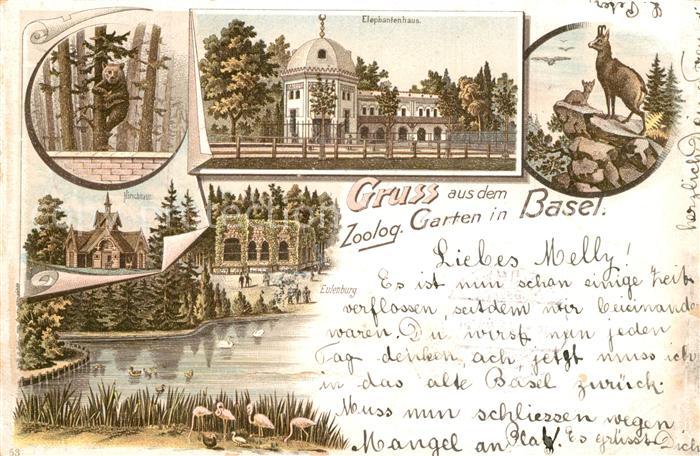 Elephantenhaus.
Hirschhaus.
Gruss aus dem
Zoolog. Garten in Basel.
Eulenburg.
Liebes Melly!
Es ist nun schon einige Zeit
verflossen, seitdem wir beieinand
waren. Du wirst nun jeden
Tag denken, ach, jetzt muss ich
in das alte Basel zurück.
Muss nun schliessen wegen
Mangel an Platz. Es grüsst Dich
53